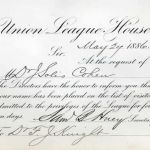 Union League House
Sir May 29 1886
At the request of
Dr J Solis Cohen
the Directors have the honor to inform you that
your name has been placed on the list of visitors
admitted to the privileges of the League for
days
To Dr F J Knight